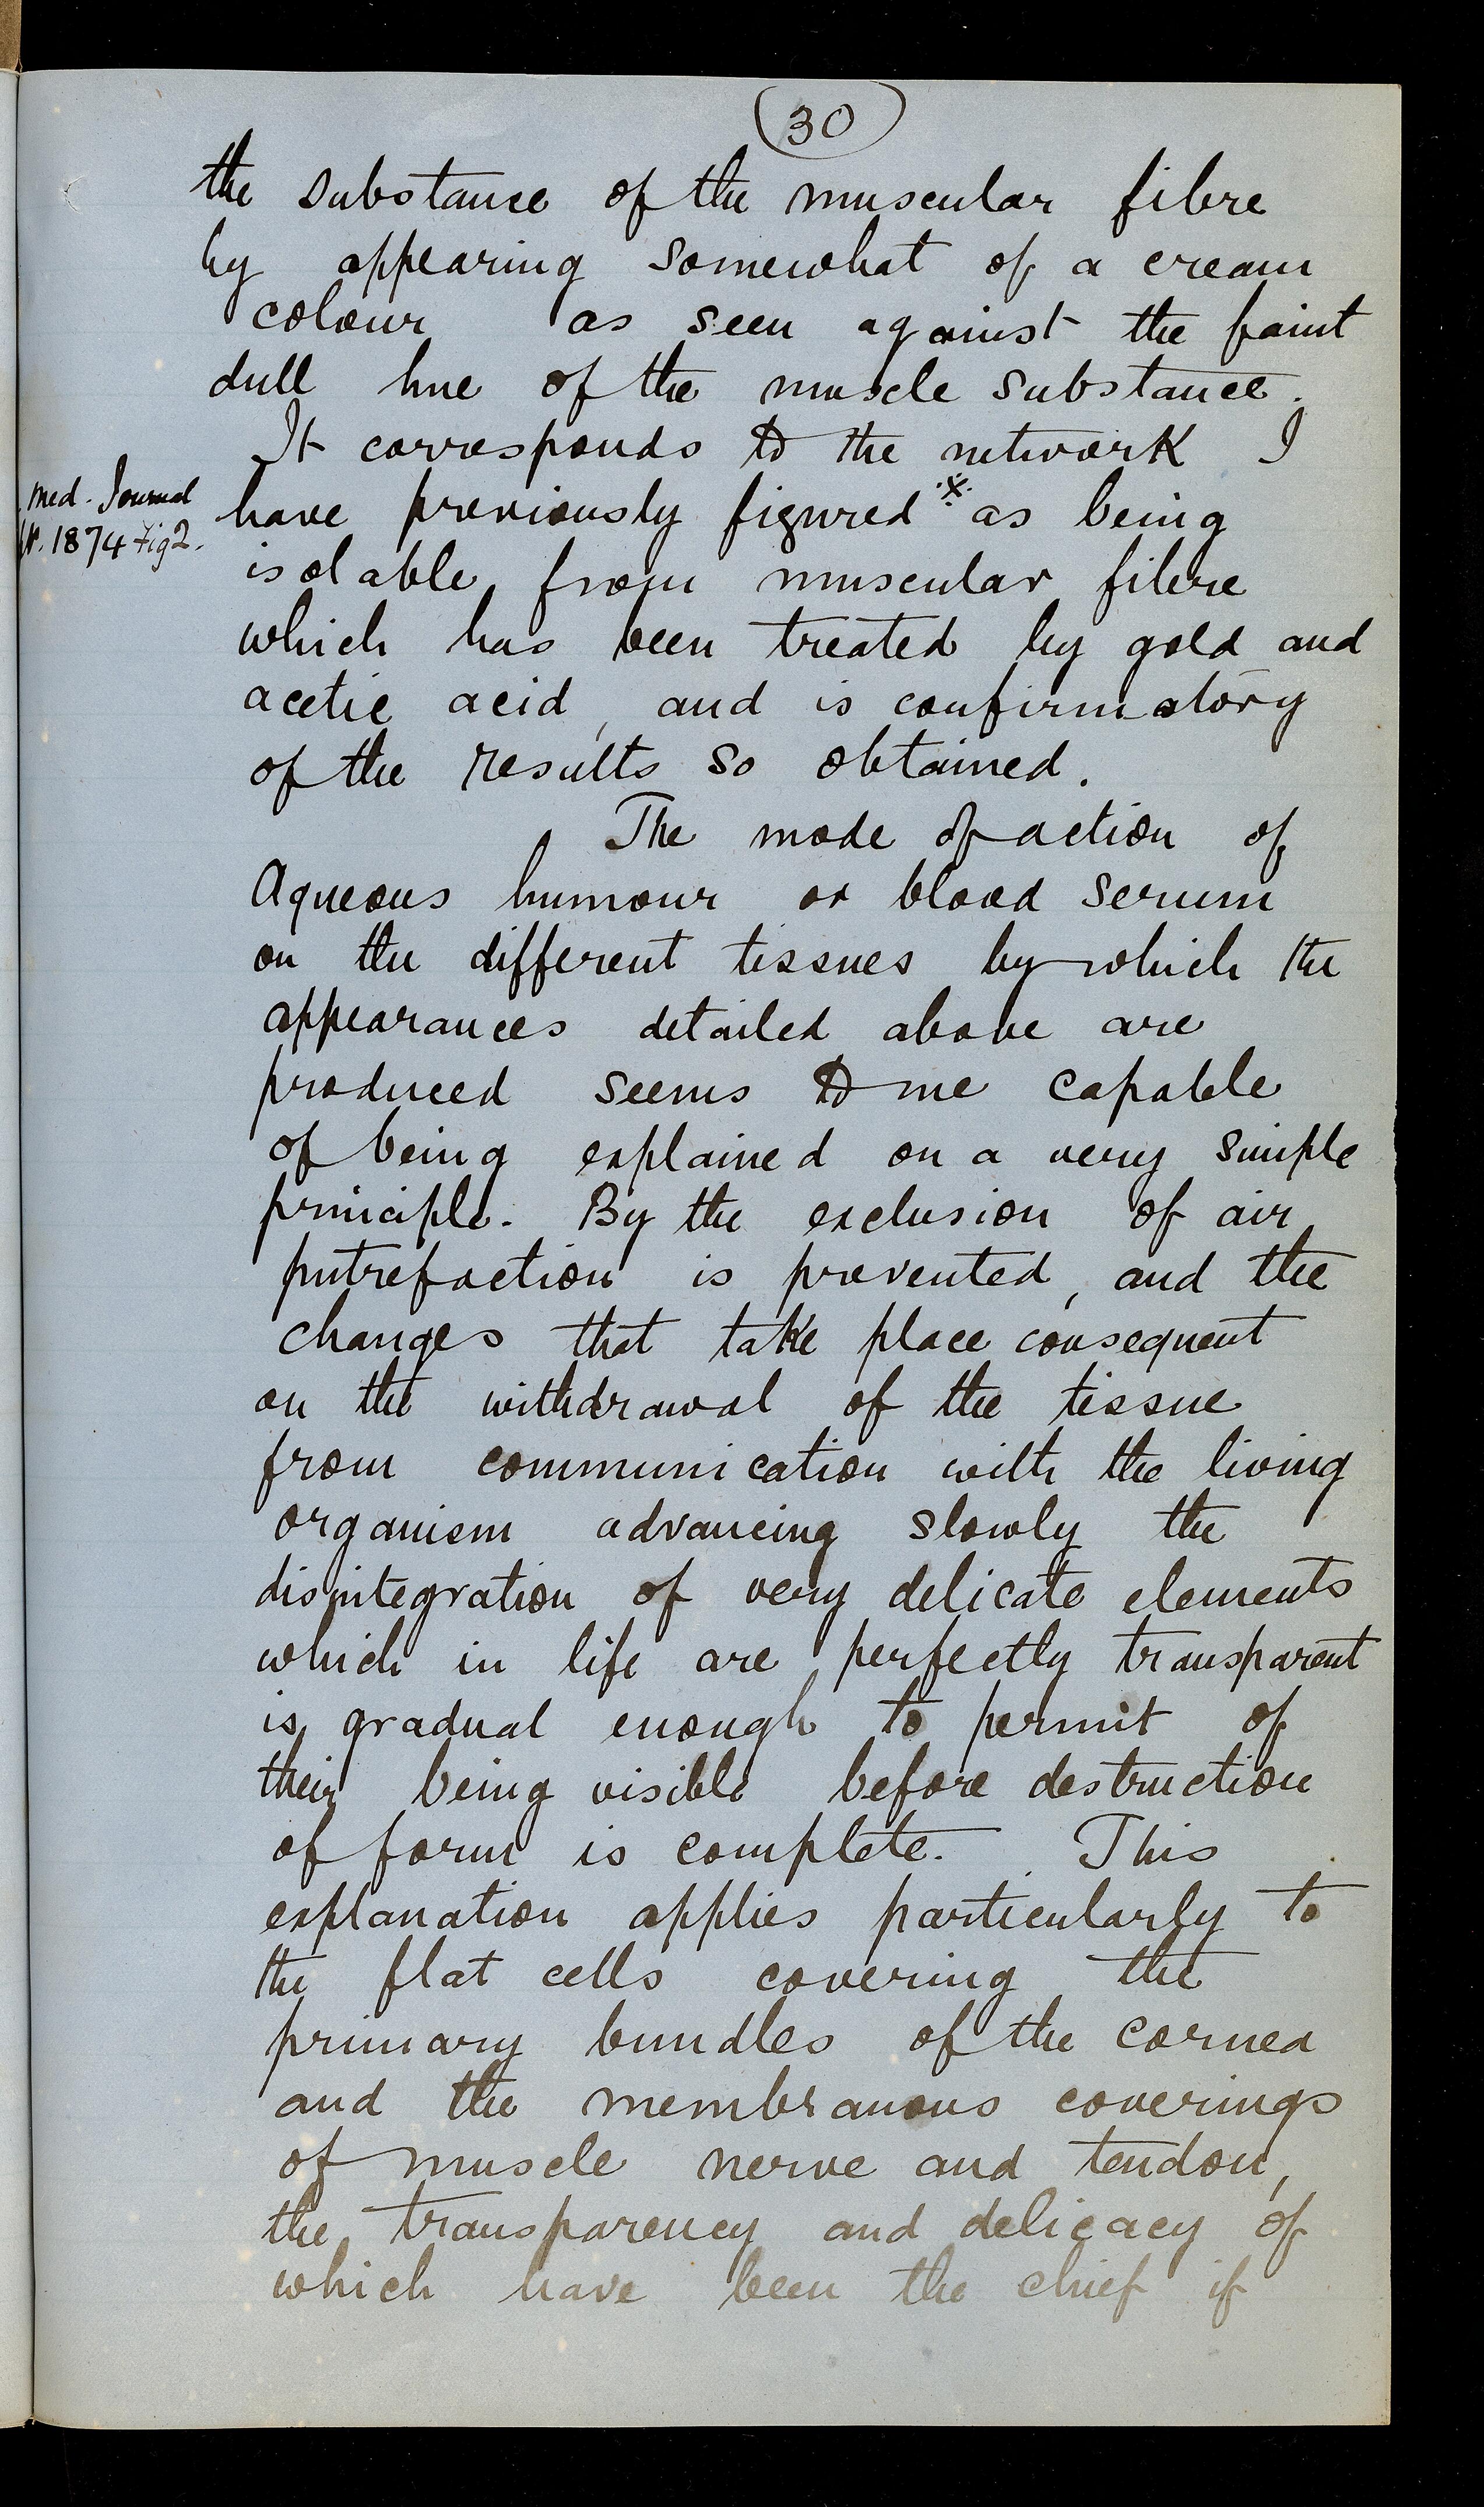 30
the substance of the muscular fibre
by appearing somewhat of a cream
colour as seen against the faint
dull hue of the muscle substance.
It corresponds to the network I
med. Journal
1874 Fig 2.
have previously figured * as being
isolable from muscular fibre
which has been treated by gold and
acetic acid, and is confirmatory
of the results so obtained.
The mode of action of
Aqueous humour or blood serum
on the different tissues by which the
appearances detailed above are
produced seems to me capable
of being explained on a very simple
principle. By the exclusion of air
putrefaction is prevented, and the
changes that take place consequent
on the withdrawal of the tissue
from communication with the living
organism advancing slowly the
disintegration of very delicate elements
which in life are perfectly transparent
is gradual enough to permit of
their being visible before destruction
of form is complete. This
explanation applies particularly to
the flat cells covering the
primary bundles of the cornea
and the membranous coverings
of muscle nerve and tendon,
the transparency and delicacy of
which have been the chief if